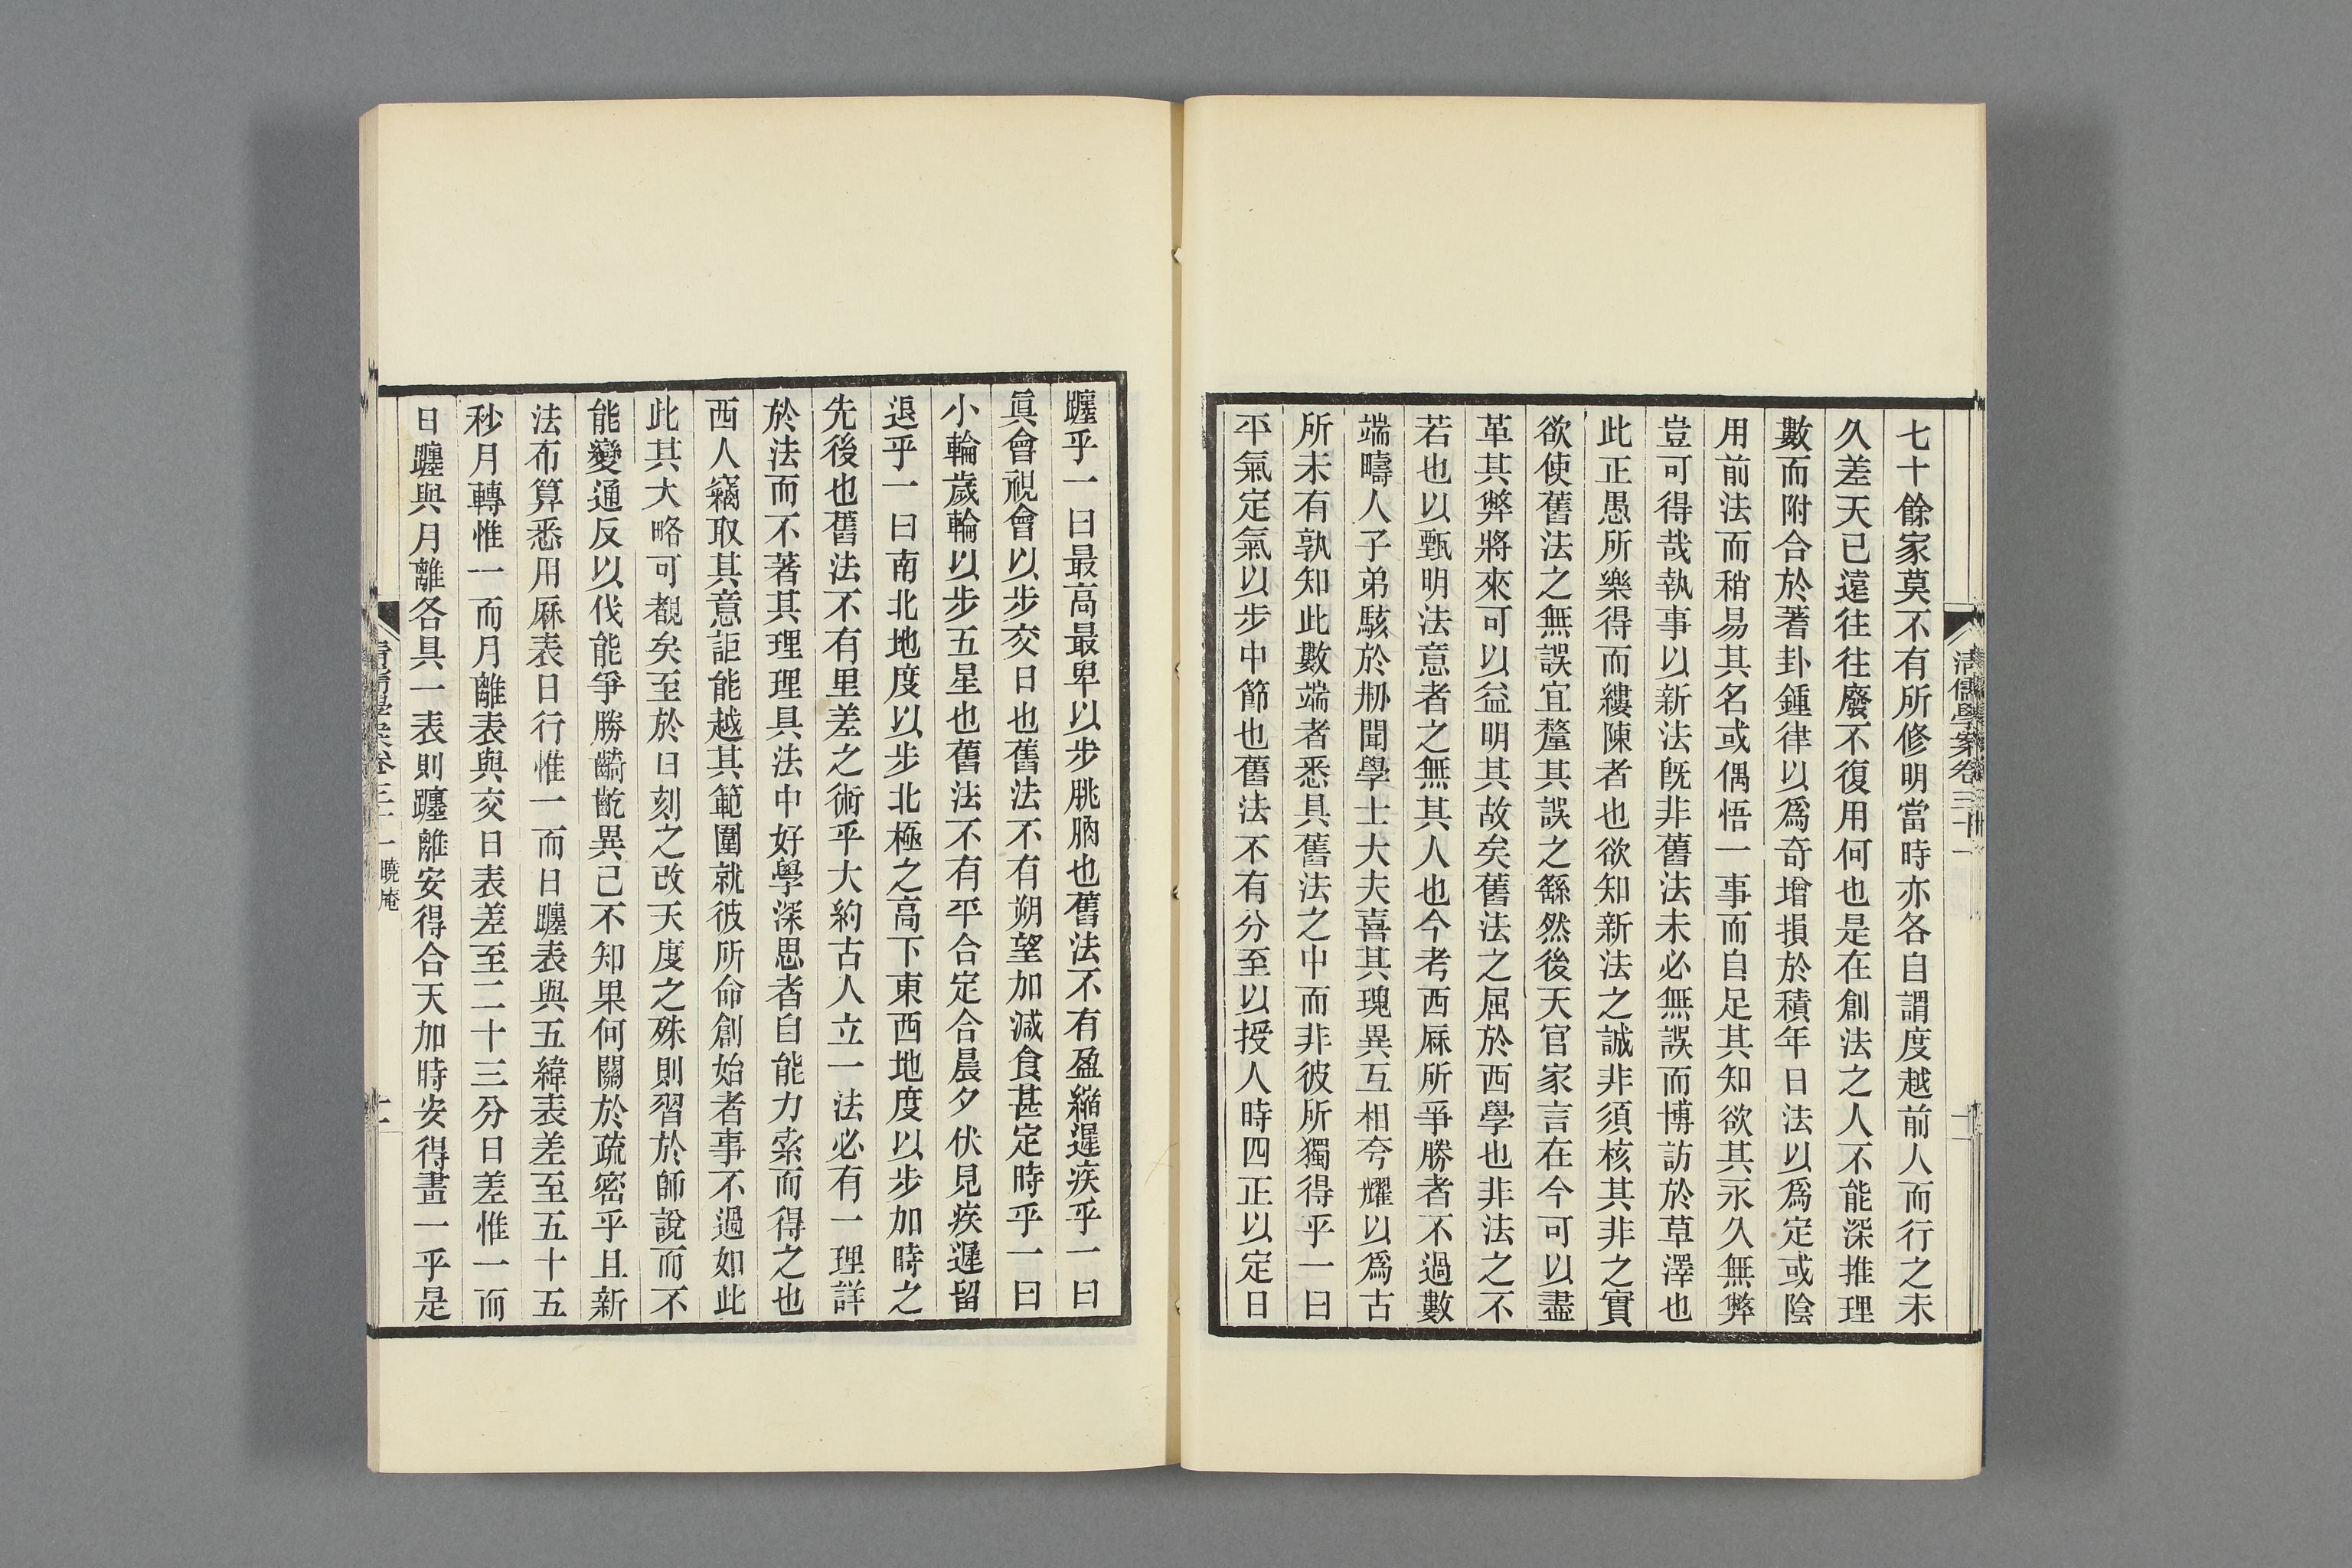 清儒學案卷三十一
七十餘家莫不有所修明當時亦各自謂度越前人而行之未
久差天已遠往往廢不復用何也是在創法之人不能深推理
數而附合於蓍卦鍾律以爲奇增損於積年日法以爲定或陰
用前法而稍易其名或偶悟一事而自足其知欲其永久無弊
豈可得哉執事以新法旣非舊法未必無誤而博訪於草澤也
此正愚所樂得而縷陳者也欲知新法之誠非須核其非之實
欲使舊法之無誤宜釐其誤之繇然後天官家言在今可以盡
革其弊將來可以益明其故矣舊法之屈於西學也非法之不
若也以甄明法意者之無其人也今考西厤所爭勝者不過數
端疇人子弟駭於刱聞學士大夫喜其瑰異互相夸耀以爲古
所未有孰知此數端者悉具舊法之中而非彼所獨得乎一曰
平氣定氣以步中節也舊法不有分至以授人時四正以定日
躔乎一曰最高最卑以步朓朒也舊法不有盈縮遲疾乎一曰
眞會視會以步交日也舊法不有朔望加減食甚定時乎一曰
小輪歲輪以步五星也舊法不有平合定合晨夕伏見疾遲留
退乎一曰南北地度以步北極之高下東西地度以步加時之
先後也舊法不有里差之術乎大約古人立一法必有一理詳
於法而不著其理理具法中好學深思者自能力索而得之也
西人竊取其意詎能越其範圍就彼所命創始者事不過如此
此其大略可覩矣至於日刻之改天度之殊則習於師說而不
能變通反以伐能爭勝齮齕異己不知果何關於疏密乎且新
法布算悉用厤表日行惟一而日躔表與五緯表差至五十五
秒月轉惟一而月離表與交日表差至二十三分日差惟一而
日躔與月離各具一表則躔離安得合天加時安得畫一乎是
清儒學案卷三十一 曉庵